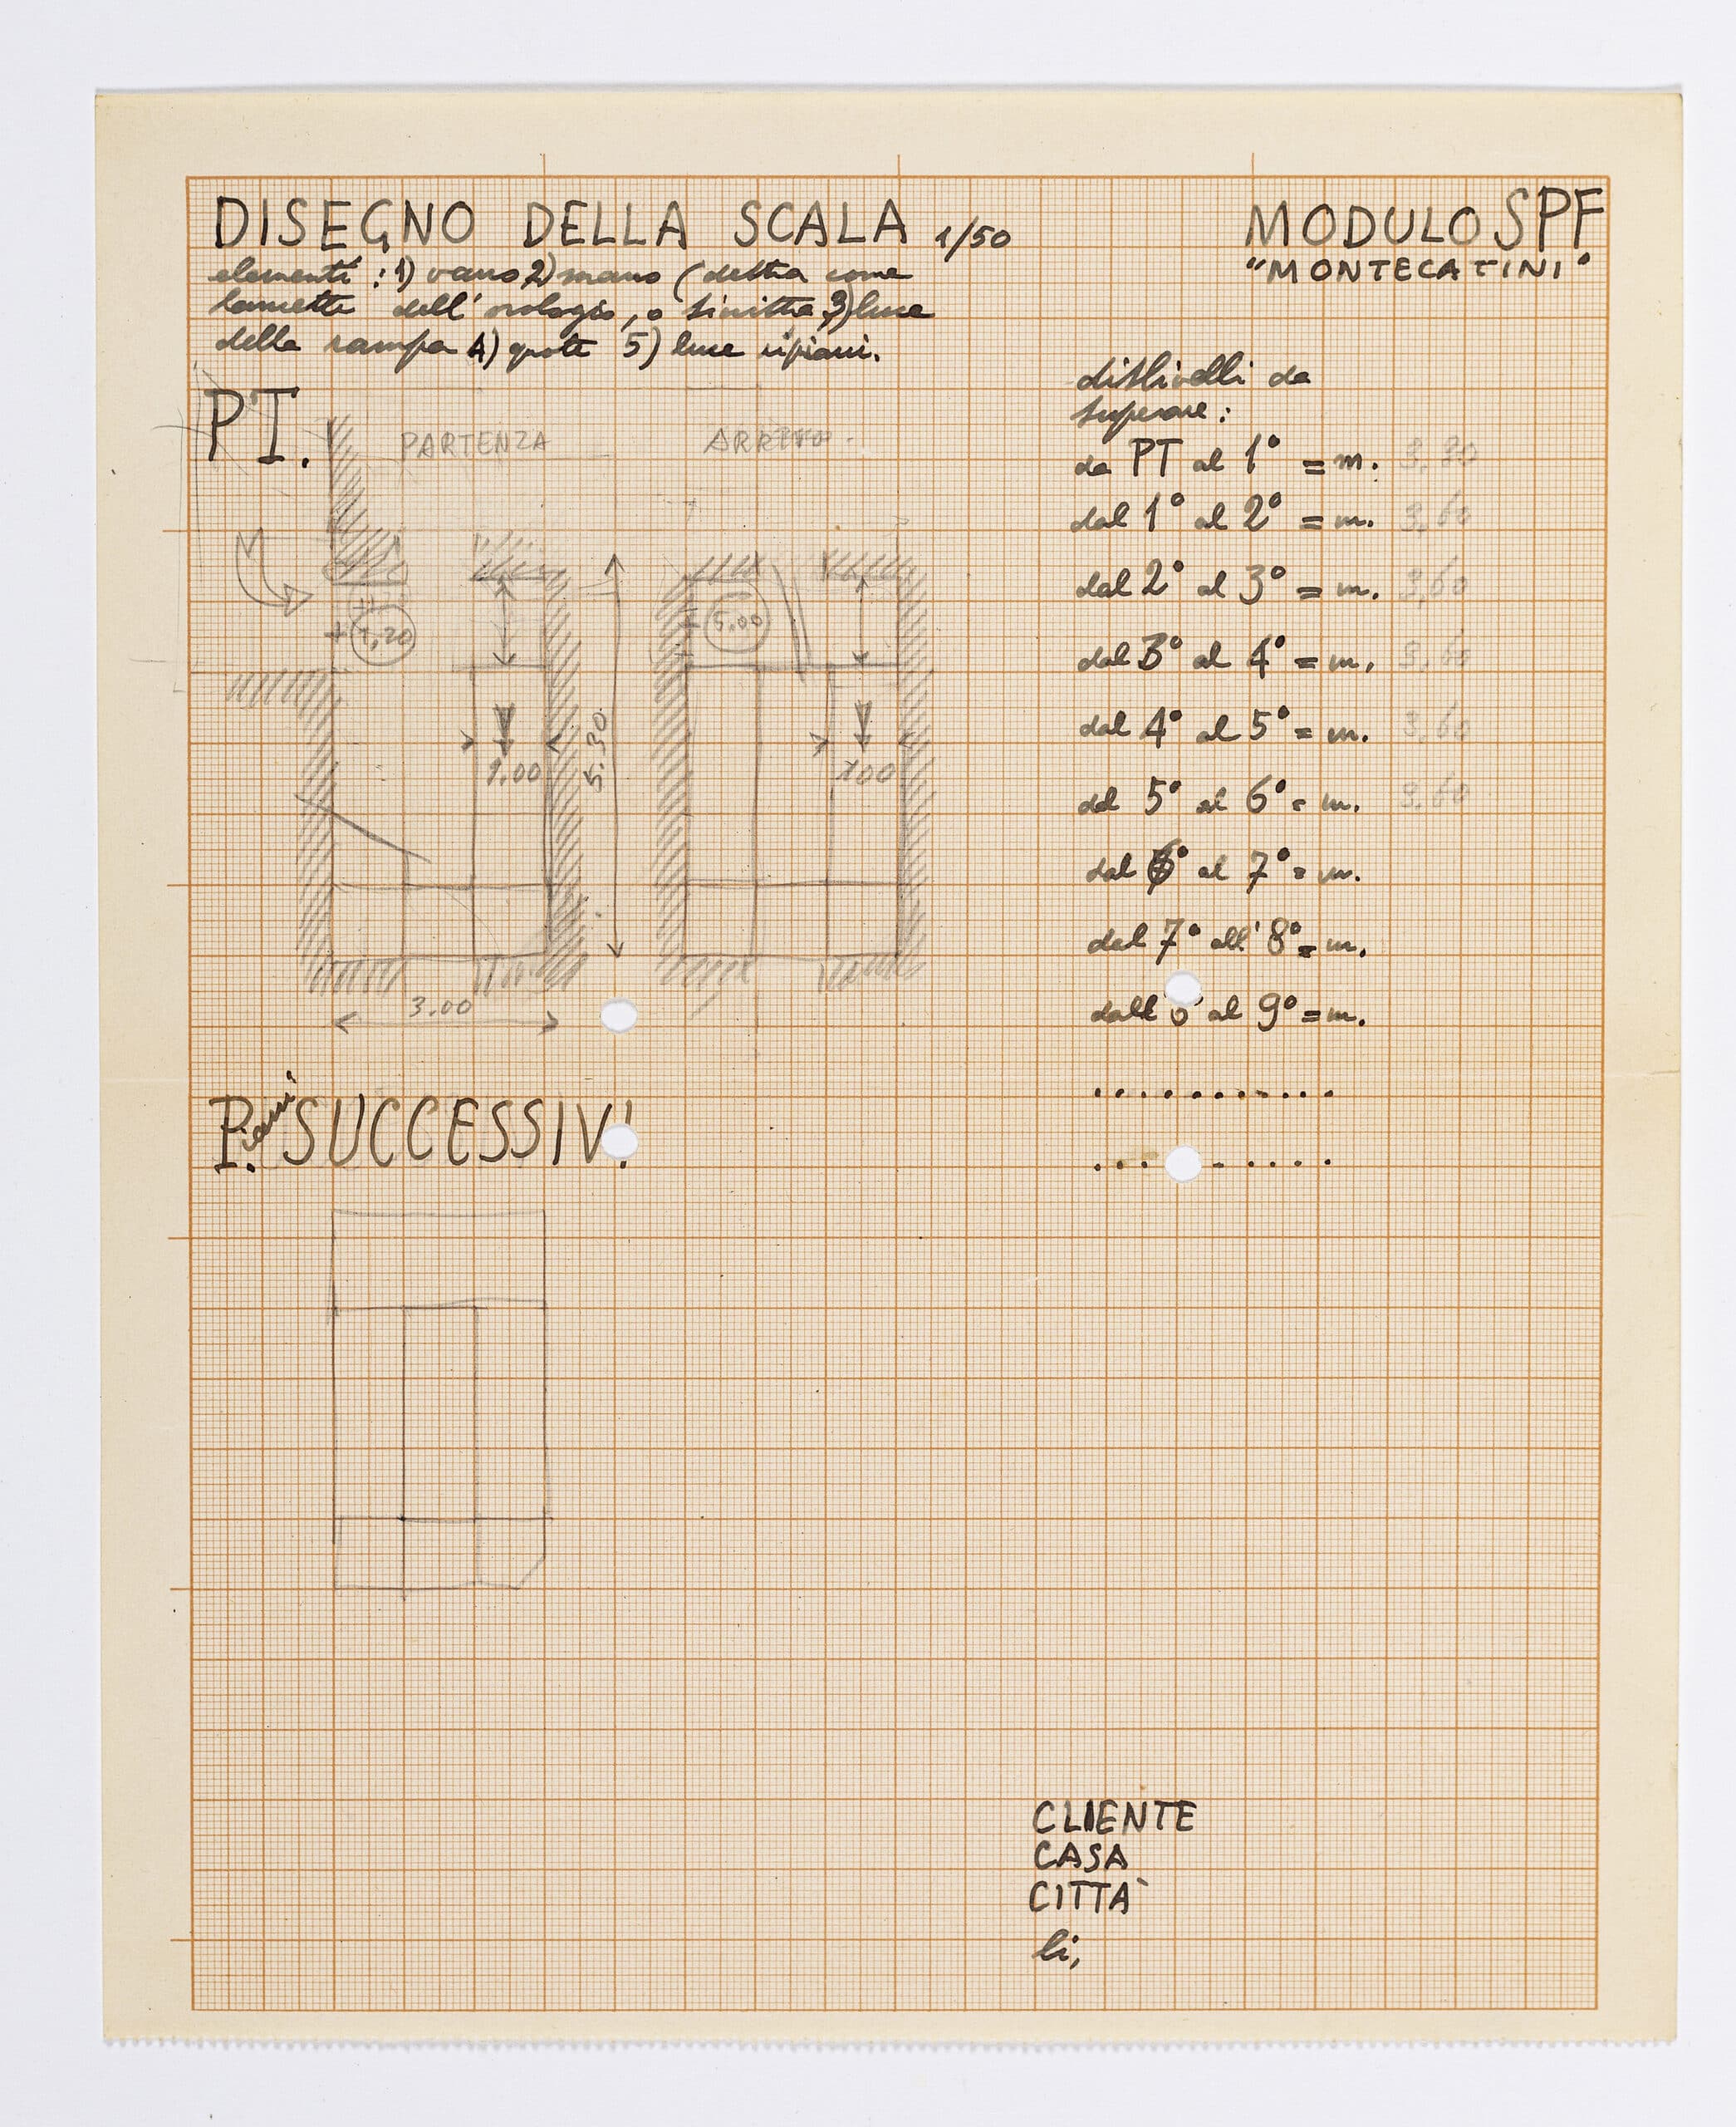 DISEGNO DELLA SCALA 1/50
MODULO SPF
"MONTECATINI"
elementi: 1) vano 2) mano (destra come
lancette dell'orologio, o sinistra 3) luce
della rampa 4) quote 5) luce ripiani.
PT.
PARTENZA
ARRIVO
+ 1,20
+ 5,00
1.00
5.30
1.00
3.00
dislivelli da
superare:
da PT al 1° = m. 3.80
dal 1° al 2° = m. 3,60
dal 2° al 3° = m. 3,60
dal 3° al 4° = m. 3,60
dal 4° al 5° = m. 3,60
dal 5° al 6° = m. 3.60
dal 6° al 7° = m.
dal 7° all'8° = m.
dall'8° al 9° = m.
...........
..........
Piani SUCCESSIVI
CLIENTE
CASA
CITTÀ
li,